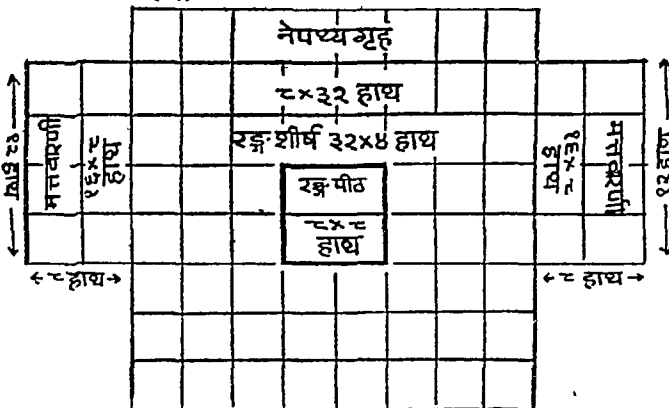 नेपथ्यगृह
८×३२ हाथ
रङ्गशीर्ष ३२×४ हाथ
रङ्गपीठ
८×८
हाथ
मत्तवारणी
८×१६
हाथ
८×१६
हाथ
मत्तवारणी
८ हाथ
८ हाथ